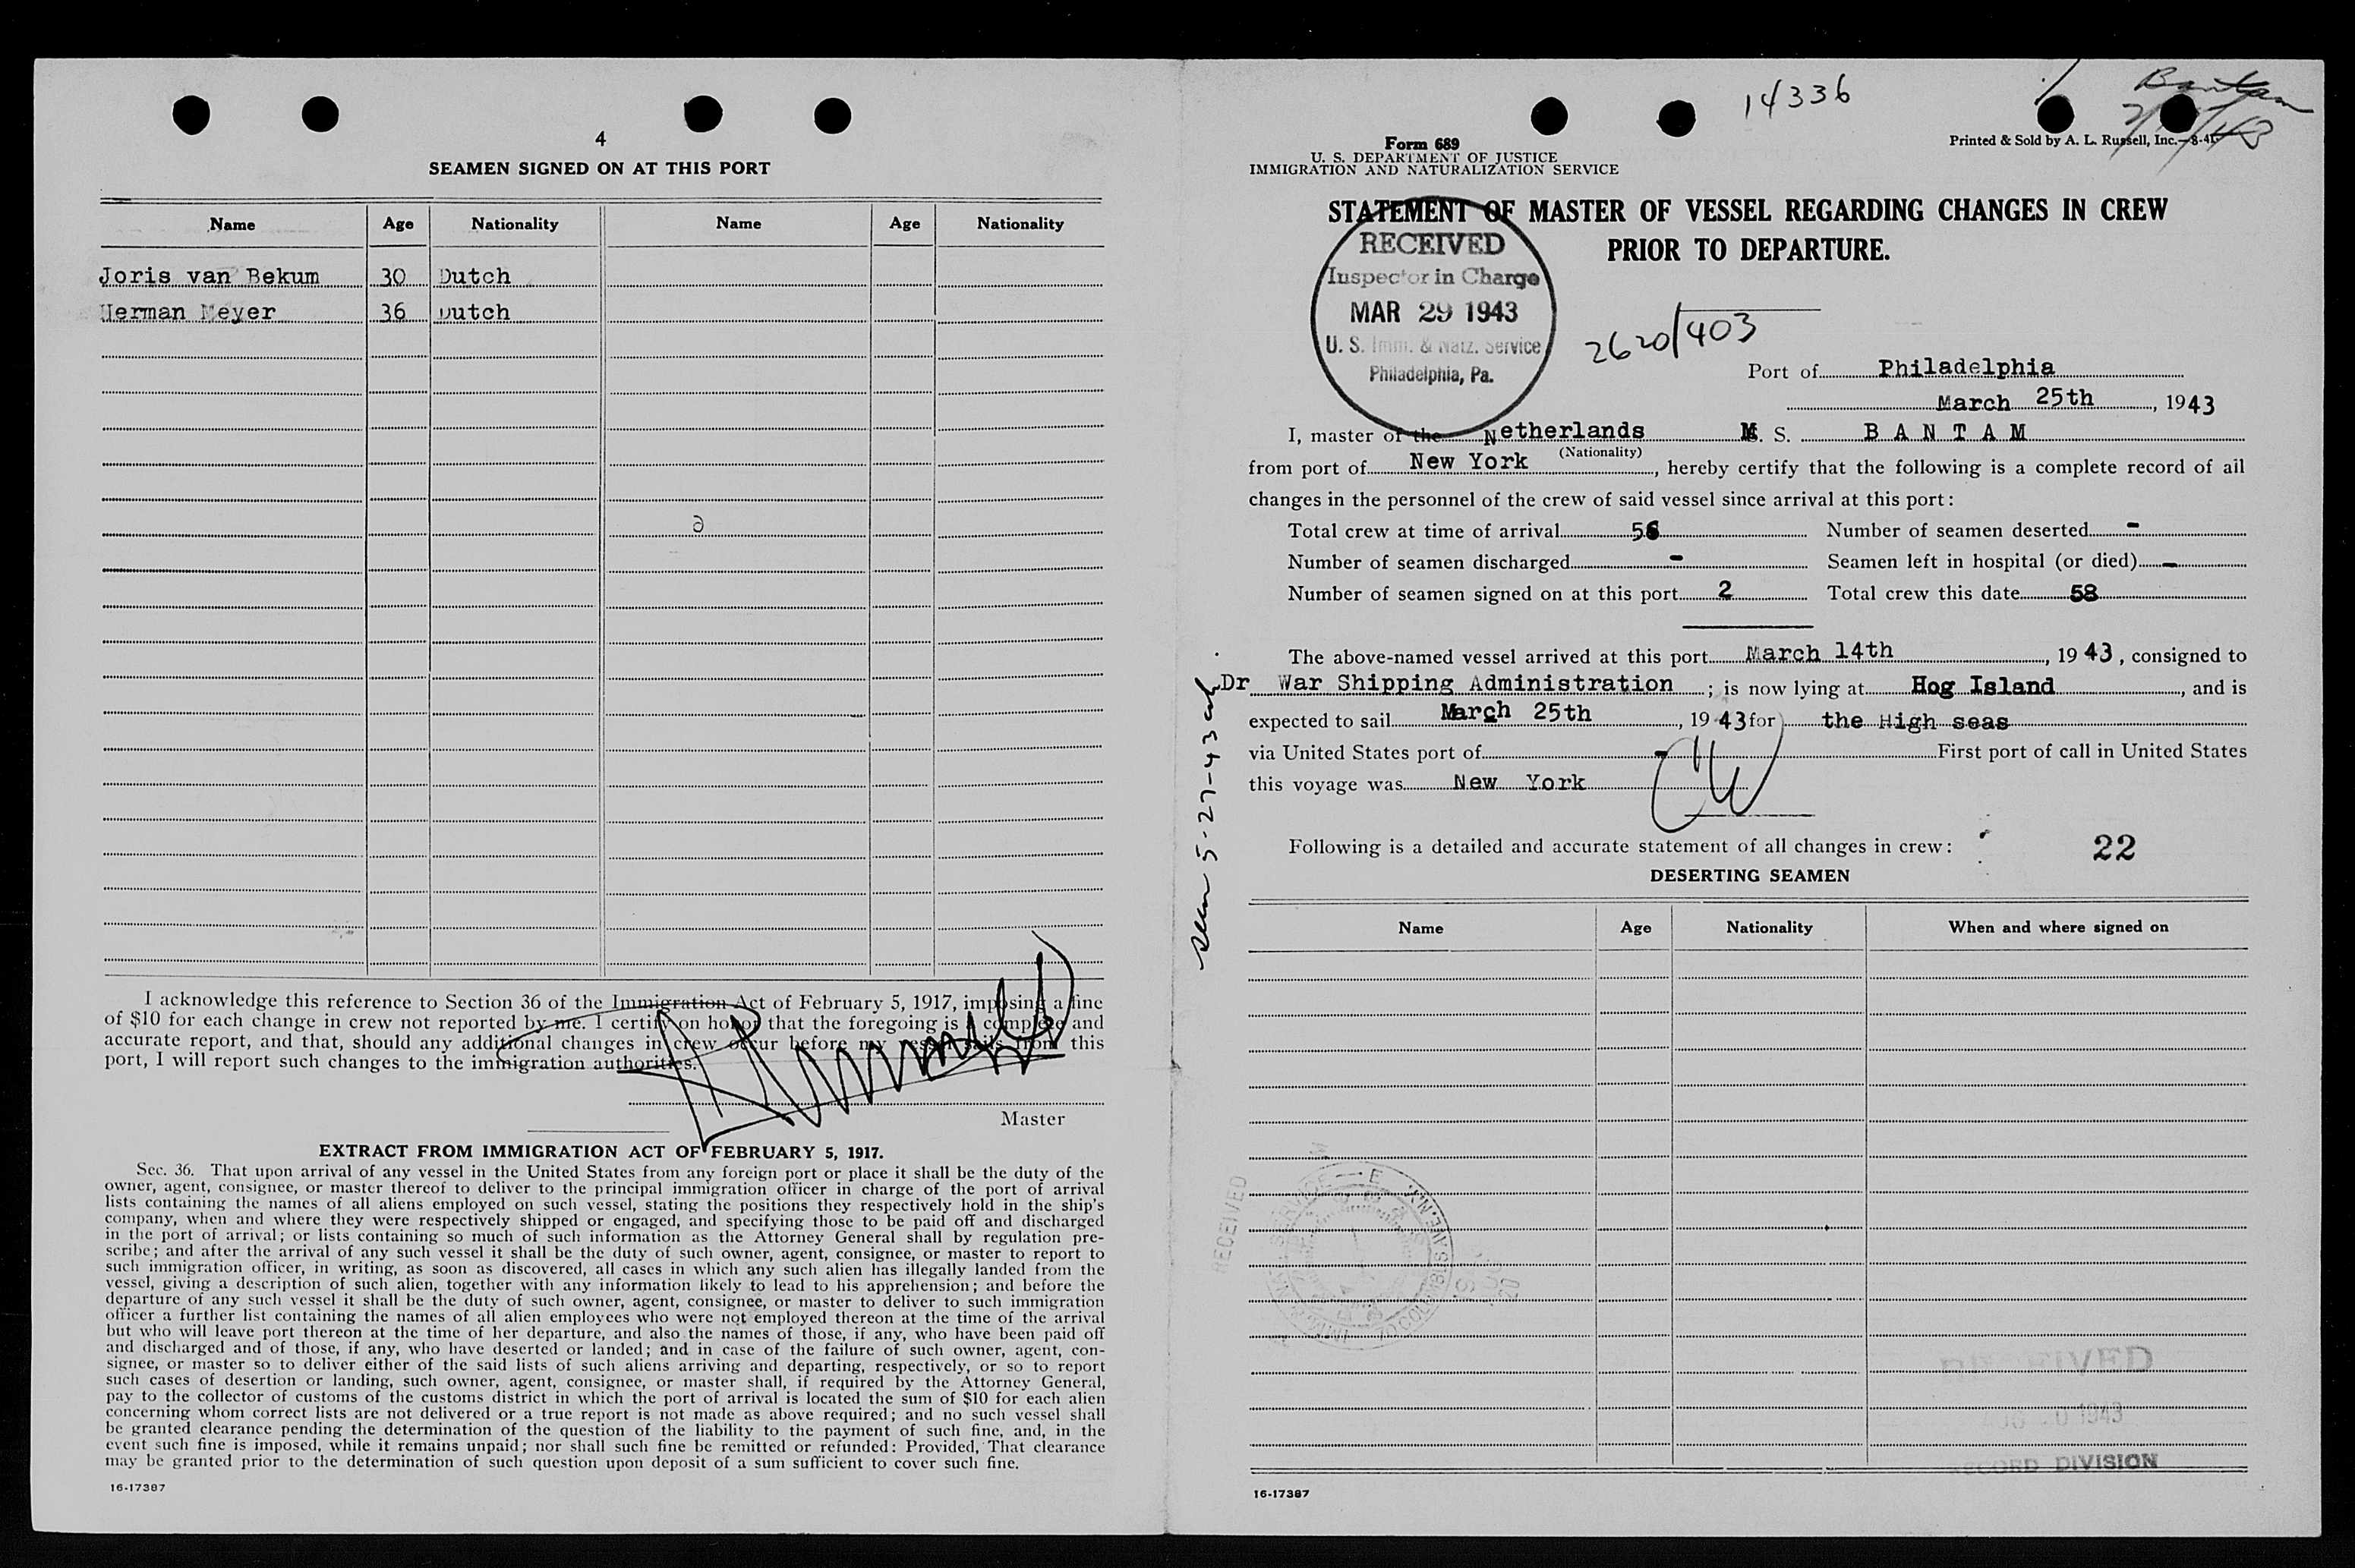 4
SEAMEN SIGNED ON AT THIS PORT
Name Age Nationality Name Age Nationality
Joris van Bekum 30 Dutch
Herman Meyer 36 Dutch
I acknowledge this reference to Section 36 of the Immigration Act of February 5, 1917, imposing a fine
of $10 for each change in crew not reported by me. I certify on honor that the foregoing is a complete and
accurate report, and that, should any additional changes in crew occur before my vessel sails from this
port, I will report such changes to the immigration authorities.
Master
EXTRACT FROM IMMIGRATION ACT OF FEBRUARY 5, 1917.
Sec. 36. That upon arrival of any vessel in the United States from any foreign port or place it shall be the duty of the
owner, agent, consignee, or master thereof to deliver to the principal immigration officer in charge of the port of arrival
lists containing the names of all aliens employed on such vessel, stating the positions they respectively hold in the ship's
company, when and where they were respectively shipped or engaged, and specifying those to be paid off and discharged
in the port of arrival; or lists containing so much of such information as the Attorney General shall by regulation pre-
scribe; and after the arrival of any such vessel it shall be the duty of such owner, agent, consignee, or master to report to
such immigration officer, in writing, as soon as discovered, all cases in which any such alien has illegally landed from the
vessel, giving a description of such alien, together with any information likely to lead to his apprehension; and before the
departure of any such vessel it shall be the duty of such owner, agent, consignee, or master to deliver to such immigration
officer a further list containing the names of all alien employees who were not employed thereon at the time of the arrival
but who will leave port thereon at the time of her departure, and also the names of those, if any, who have been paid off
and discharged and of those, if any, who have deserted or landed; and in case of the failure of such owner, agent, con-
signee, or master so to deliver either of the said lists of such aliens arriving and departing, respectively, or so to report
such cases of desertion or landing, such owner, agent, consignee, or master shall, if required by the Attorney General,
pay to the collector of customs of the customs district in which the port of arrival is located the sum of $10 for each alien
concerning whom correct lists are not delivered or a true report is not made as above required; and no such vessel shall
be granted clearance pending the determination of the question of the liability to the payment of such fine, and, in the
event such fine is imposed, while it remains unpaid; nor shall such fine be remitted or refunded: Provided, That clearance
may be granted prior to the determination of such question upon deposit of a sum sufficient to cover such fine.
16-17387
14336
Bantam
Form 689
U. S. DEPARTMENT OF JUSTICE
IMMIGRATION AND NATURALIZATION SERVICE
Printed & Sold by A. L. Russell, Inc.—8-41
STATEMENT OF MASTER OF VESSEL REGARDING CHANGES IN CREW
PRIOR TO DEPARTURE.
RECEIVED
Inspector in Charge
MAR 29 1943
U. S. Imm. & Natz. Service
Philadelphia, Pa.
2620/403
Port of Philadelphia
March 25th, 1943
I, master of the Netherlands M. S. BANTAM
(Nationality)
from port of New York, hereby certify that the following is a complete record of all
changes in the personnel of the crew of said vessel since arrival at this port:
Total crew at time of arrival 56 Number of seamen deserted -
Number of seamen discharged - Seamen left in hospital (or died) -
Number of seamen signed on at this port 2 Total crew this date 58
The above-named vessel arrived at this port March 14th, 1943, consigned to
Dr War Shipping Administration; is now lying at Hog Island, and is
expected to sail March 25th, 1943 for the High seas
via United States port of - First port of call in United States
this voyage was New York
CW
seen 5-27-43
Following is a detailed and accurate statement of all changes in crew:
22
DESERTING SEAMEN
Name Age Nationality When and where signed on
RECEIVED
RECEIVED
1943
RECORD DIVISION
16-17387